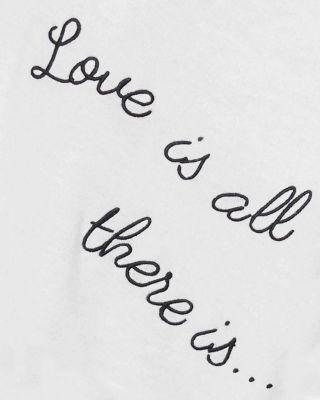 Love is all
there is...